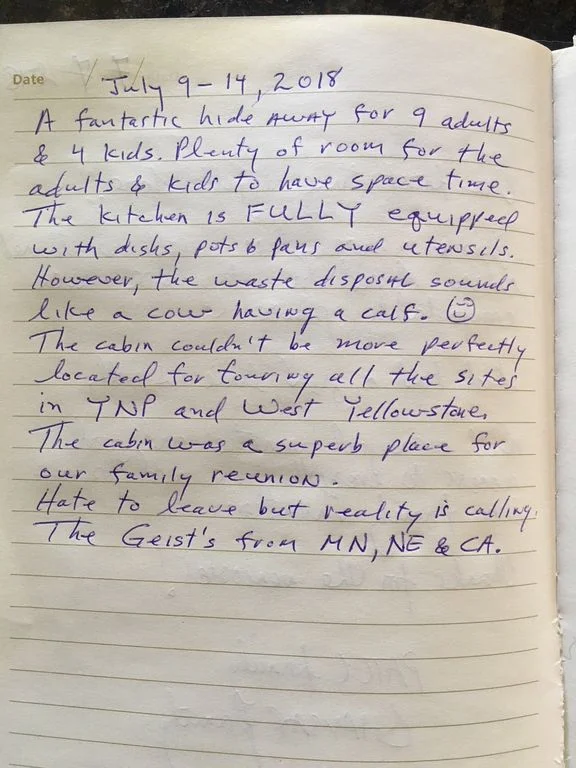 Date
July 9-14, 2018
A fantastic hide AWAY for 9 adults
& 4 kids. Plenty of room for the
adults & kids to have space time.
The kitchen is FULLY equipped
with dishs, pots & pans and utensils.
However, the waste disposal sounds
like a cow having a calf. ☺
The cabin couldn't be more perfectly
located for touring all the sites
in YNP and West Yellowstone.
The cabin was a superb place for
our family reunion.
Hate to leave but reality is calling.
The Geist's from MN, NE & CA.